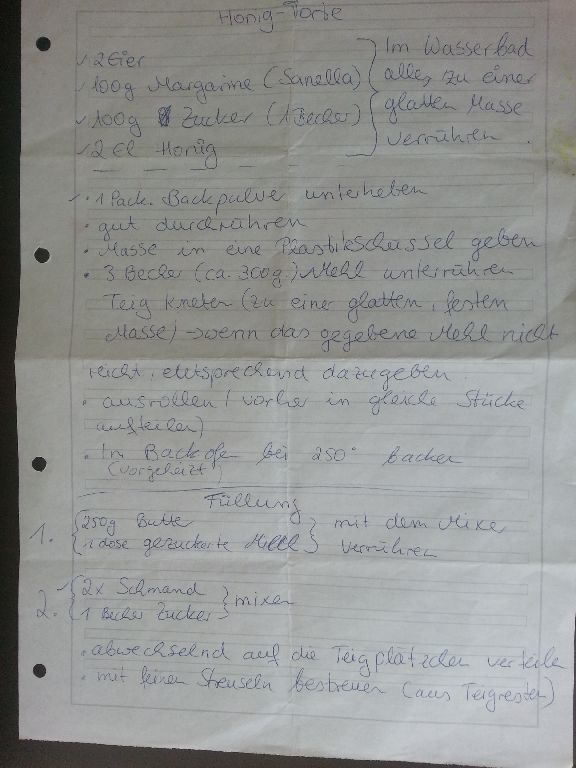 Honig-Torte
2 Eier
100g Margarine (Sanella)
100g Zucker (1 Becher)
2 El Honig
Im Wasserbad
alles zu einer
glatten Masse
verrühren.
• 1 Pack. Backpulve unterheben
• gut durchrühren
• Masse in eine Plastikschüssel geben
• 3 Becher (ca. 300g) Mehl unterrühren
Teig kneten (zu einer glatten, festen
Masse) → wenn das gegebene Mehl nicht
reicht, entsprechend dazugeben.
• ausrollen (vorher in gleiche Stücke
aufteilen)
• Im Backofen bei 250° backen
(vorgeheizt)
Füllung
1. 250g Butter
1 dose gezuckerte Milch
mit dem Mixer
verrühren
2. 2x Schmand
1 Becher Zucker
mixen
• abwechselnd auf die Teigplätzchen verteilen
• mit feinen Streuseln bestreuen (aus Teigresten)